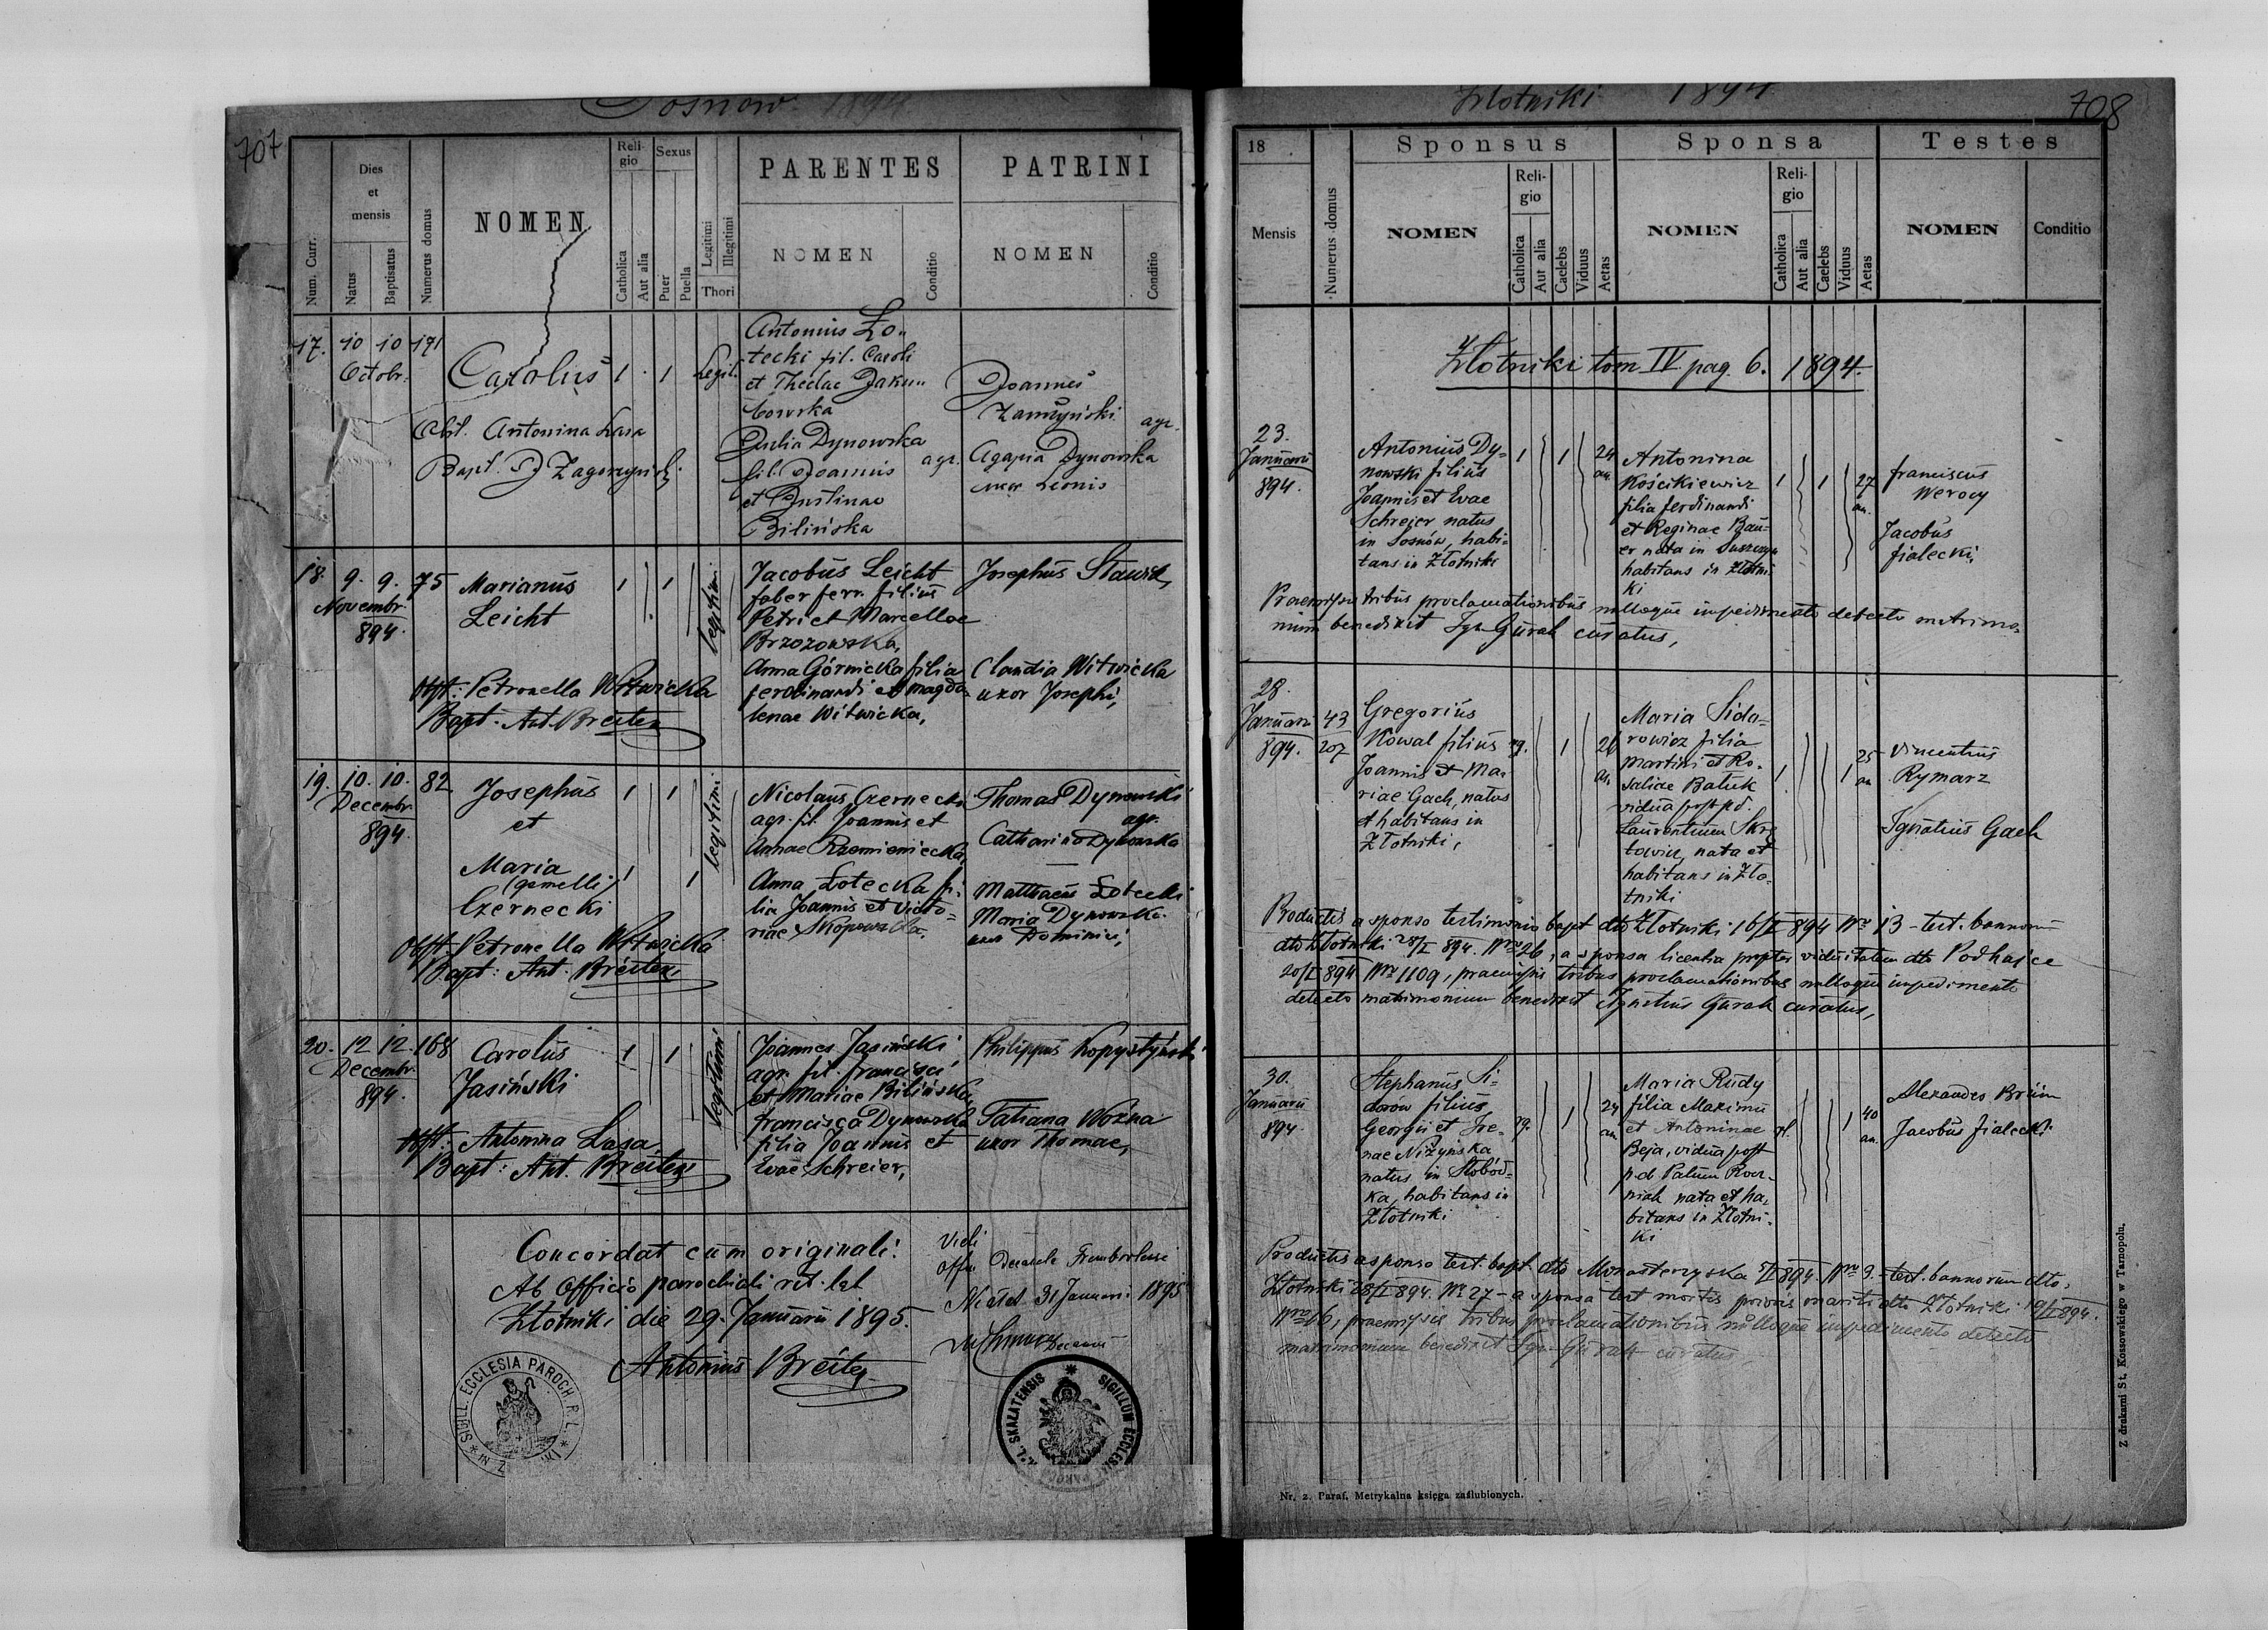 707
Sosnów 1894
Num. Curr.
Dies
et
mensis
Natus
Baptisatus
Numerus domus
NOMEN
Reli-
gio
Catholica
Aut alia
Sexus
Puer
Puella
Legitimi
Illegitimi
Thori
PARENTES
NOMEN
Conditio
PATRINI
NOMEN
Conditio
17. 10 10 171
Octobr.
Carolus 1 1 Legit.
Obst. Antonina Łasa
Bapt.
Antonius Ło-
tecki fil. Caroli
et Theclae Jaku-
bowska
Julia Dynowska
fil. Joannis agr.
et Justinae
Bilińska
Joannes
agr.
Agapia Dynowska
uxor Leonis
18. 9. 9. 75
Novembr.
894.
Marianus 1 1 legitimi
Leicht
Obst: Petronella Witwicka
Bapt: Ant. Breiter
Jacobus Leicht
faber ferr. filius
Petri et Marcellae
Brzozowska,
Anna Górnicka filia
ferdinandi et Magda-
lenae Witwicka,
Josephus Sławik,
Claudia Witwicka
uxor Josephi,
19. 10. 10. 82
Decembr.
894.
Josephus 1 1 legitimi
et
Maria 1 1
(gemelli)
Czernecki
Obst. Petronella Witwicka
Bapt: Ant. Breiter
Nicolaus Czernecki
agr. fil. Joannis et
Annae Rzemieniecka,
Anna Łotecka fi-
lia Joannis et Victo-
riae Skopowska.
Thomas Dynowski
agr.
Catharina Dynowska
Matthaeus Łotecki
Maria Dynowska
uxor Dominici,
20. 12 12. 168
Decembr.
894.
Carolus 1 1 legitimi
Jasiński
Obst: Antonina Łasa,
Bapt: Ant. Breiter
Joannes Jasiński
agr. fil. francisci
et Mariae Bilińska,
francisca Dynowska
filia Joannis et
Evae Schreier,
Philippus Kopystyński
Tatiana Woźna
uxor Thomae,
Concordat cum originali:
Ab Officio parochiali rit. lat
Złotniki die 29. Januarii 1895.
Antonius Breiter
Vidi
Offm Decanale
31 Januari 1895
Decanus
SIGILL. ECCLESIA PAROCH. R. L.
SKAŁATENSIS SIGILLUM ECCLES
708
Złotniki 1894
18
Mensis
Numerus domus
Sponsus
NOMEN
Reli-
gio
Catholica
Aut alia
Caelebs
Viduus
Aetas
Sponsa
NOMEN
Reli-
gio
Catholica
Aut alia
Caelebs
Viduus
Aetas
Testes
NOMEN
Conditio
Złotniki tom IV. pag. 6. 1894.
23.
Januarii
894.
Antonius Dy-
nowski filius
Joannis et Evae
Schreier natus
in Sosnów, habi-
tans in Złotniki
1 1 24
an.
Antonina
Kościkiewicz
filia ferdinandi
et Reginae Bau-
er nata in
habitans in Złotni-
ki
1 1 27
an.
franciscus
Werocy
Jacobus
fialecki,
Praemissis tribus proclamationibus nulloque impedimento detecto matrimo-
nium benedixit Ign. Gurak curatus,
28.
Januarii
894.
43
207
Gregorius
Kowal filius
Joannis et Ma-
riae Gach, natus
et habitans in
Złotniki,
1 26
an.
Maria Sido-
rowicz filia
Martini et Ro-
saliae Batuk
vidua post p.d.
Laurentium
nata et
habitans in Zło-
tniki
1 1 25
an
Vincentius
Rymarz
Ignatius Gach
Productis a sponso testimonio bapt. dto Złotniki 16/I 894 Nro 13 - test. bannorum
dto Złotniki 28/I 894. Nro 26, a sponsa licentia propter viduitatem dto Podhajce
20/I 894 Nro 1109, praemissis tribus proclamationibus nulloque impedimento
detecto matrimonium benedixit Ignatius Gurak curatus,
30.
Januarii
894.
Stephanus Si-
dorów filius
Georgii et Ire-
nae Niżyńska
natus in Słobód-
ka, habitans in
Złotniki
1 24
an.
Maria Rudy
filia Maximi
et Antoninae
Beja, vidua post
p.d.
nata et ha-
bitans in Złotni-
ki
1 40
an.
Alexander Brüm
Jacobus fialecki
Productis a sponso test. bapt. dto Monasterzyska 5/I 894. Nro 9. - test. bannorum dto.
Złotniki 28/I 894. No 27 - a sponsa test mortis prioris mariti dto Złotniki 19/I 894.
Nro 16, praemissis tribus proclamationibus nulloque impedimento detecto
matrimonium benedixit Ign. Gurak curatus
Nr. 2. Paraf. Metrykalna księga zaślubionych.
Z drukarni St. Kossowskiego w Tarnopolu.